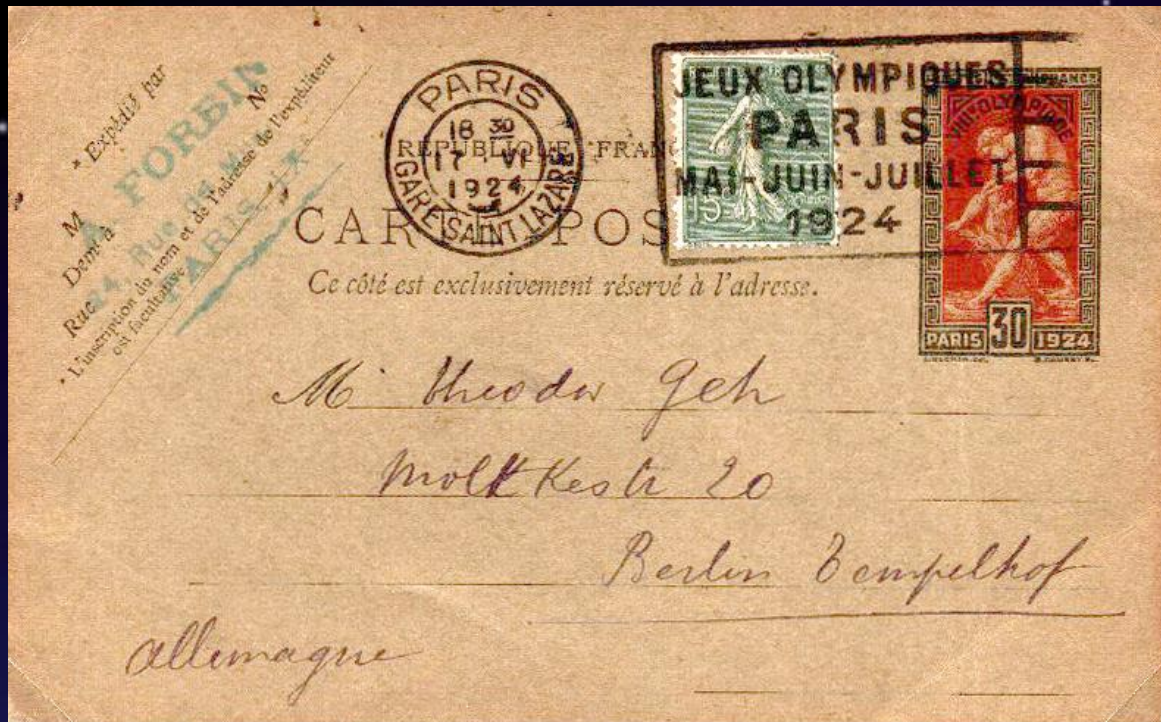 * Expédié par
M
A FORBIN
Demt à
Rue No
24, Rue de
PARIS IX
* L'inscription du nom et de l'adresse de l'expéditeur
est facultative
PARIS
18 30
17 VI
1924
GARE SAINT LAZARE
RÉPUBLIQUE FRANÇ
CAR POS
Ce côté est exclusivement réservé à l'adresse.
15
JEUX OLYMPIQUES
PARIS
MAI-JUIN-JUILLET
1924
VIII. OLYMPIADE
PARIS 30 1924
M Theodor Geh
Moltkestr 20
Berlin Tempelhof
Allemagne